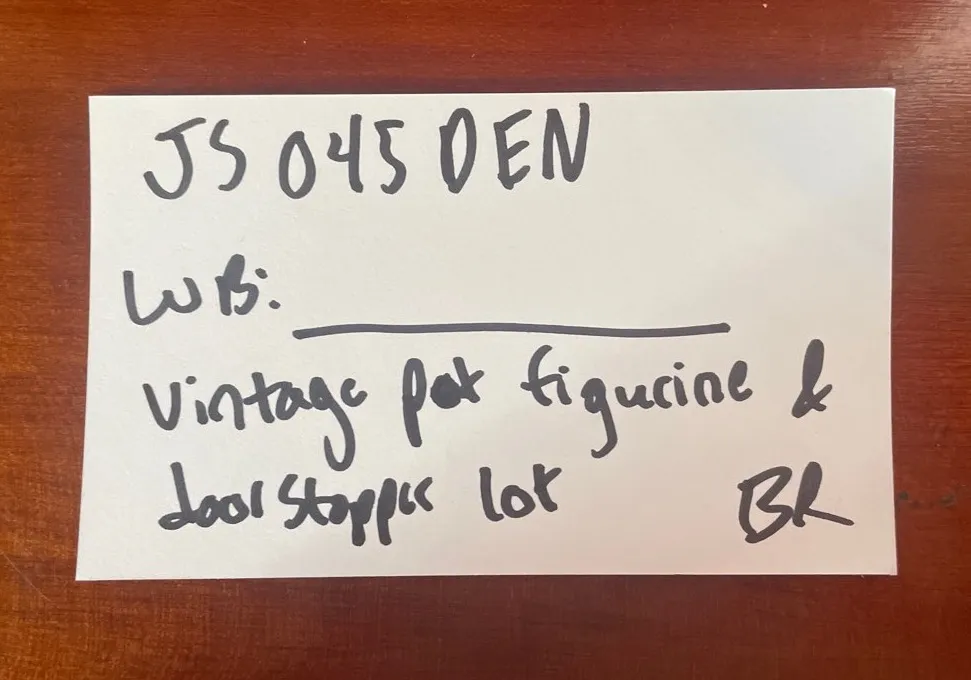 JS 045 DEN
WB:
Vintage pot figurine &
door stopper lot BR